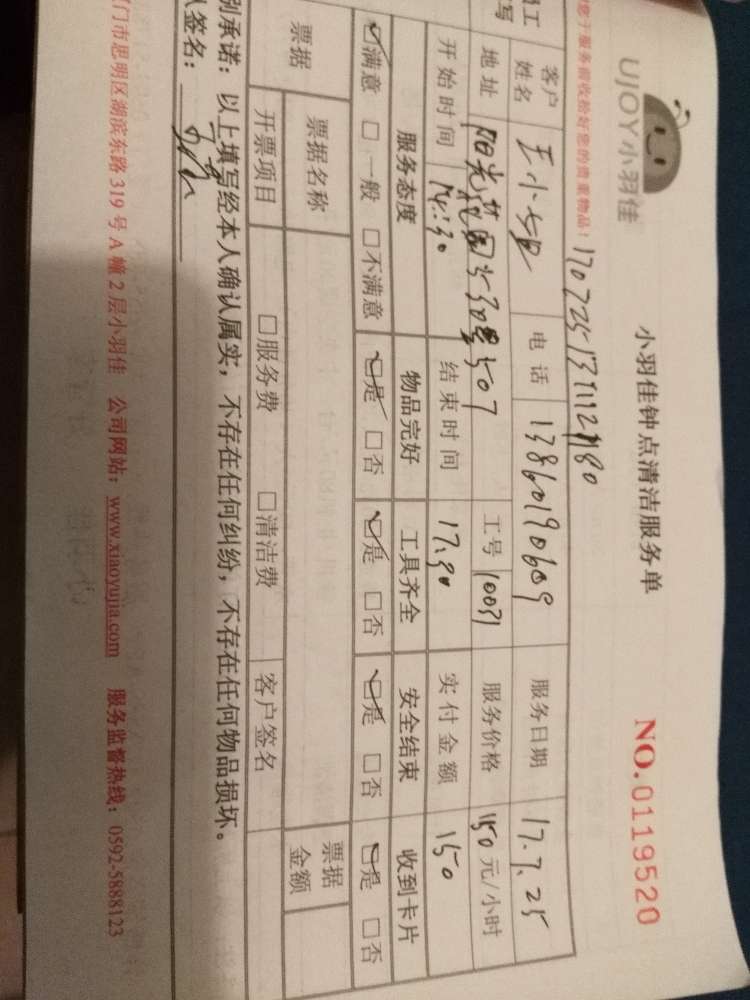 UJOY小羽佳
小羽佳钟点清洁服务单
NO.0119520
您于服务前收拾好您的贵重物品！
客户姓名 王小 电话 13860190609 服务日期 17.7.25
地址 阳光花园530 507 工号 10031 服务价格 150元/小时
开始时间 14:30 结束时间 17.30 实付金额 150
服务态度 物品完好 工具齐全 安全结束 收到卡片
☑满意 □一般 □不满意 ☑是 □否 ☑是 □否 ☑是 □否 ☑是 □否
票据 票据名称 票据金额
开票项目 □服务费 □清洁费 客户签名
别承诺：以上填写经本人确认属实，不存在任何纠纷，不存在任何物品损坏。
签名：
门市思明区湖滨东路319号A幢2层小羽佳 公司网站：www.xiaoyujia.com 服务监督热线：0592-5888123